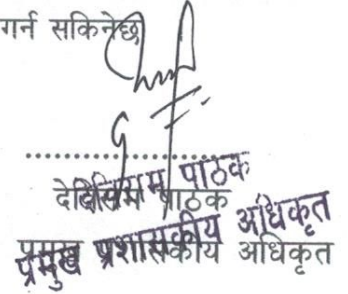 गर्न सकिनेछ
....................
देविराम पाठक
देविराम पाठक
प्रमुख प्रशासकीय अधिकृत
प्रमुख प्रशासकीय अधिकृत